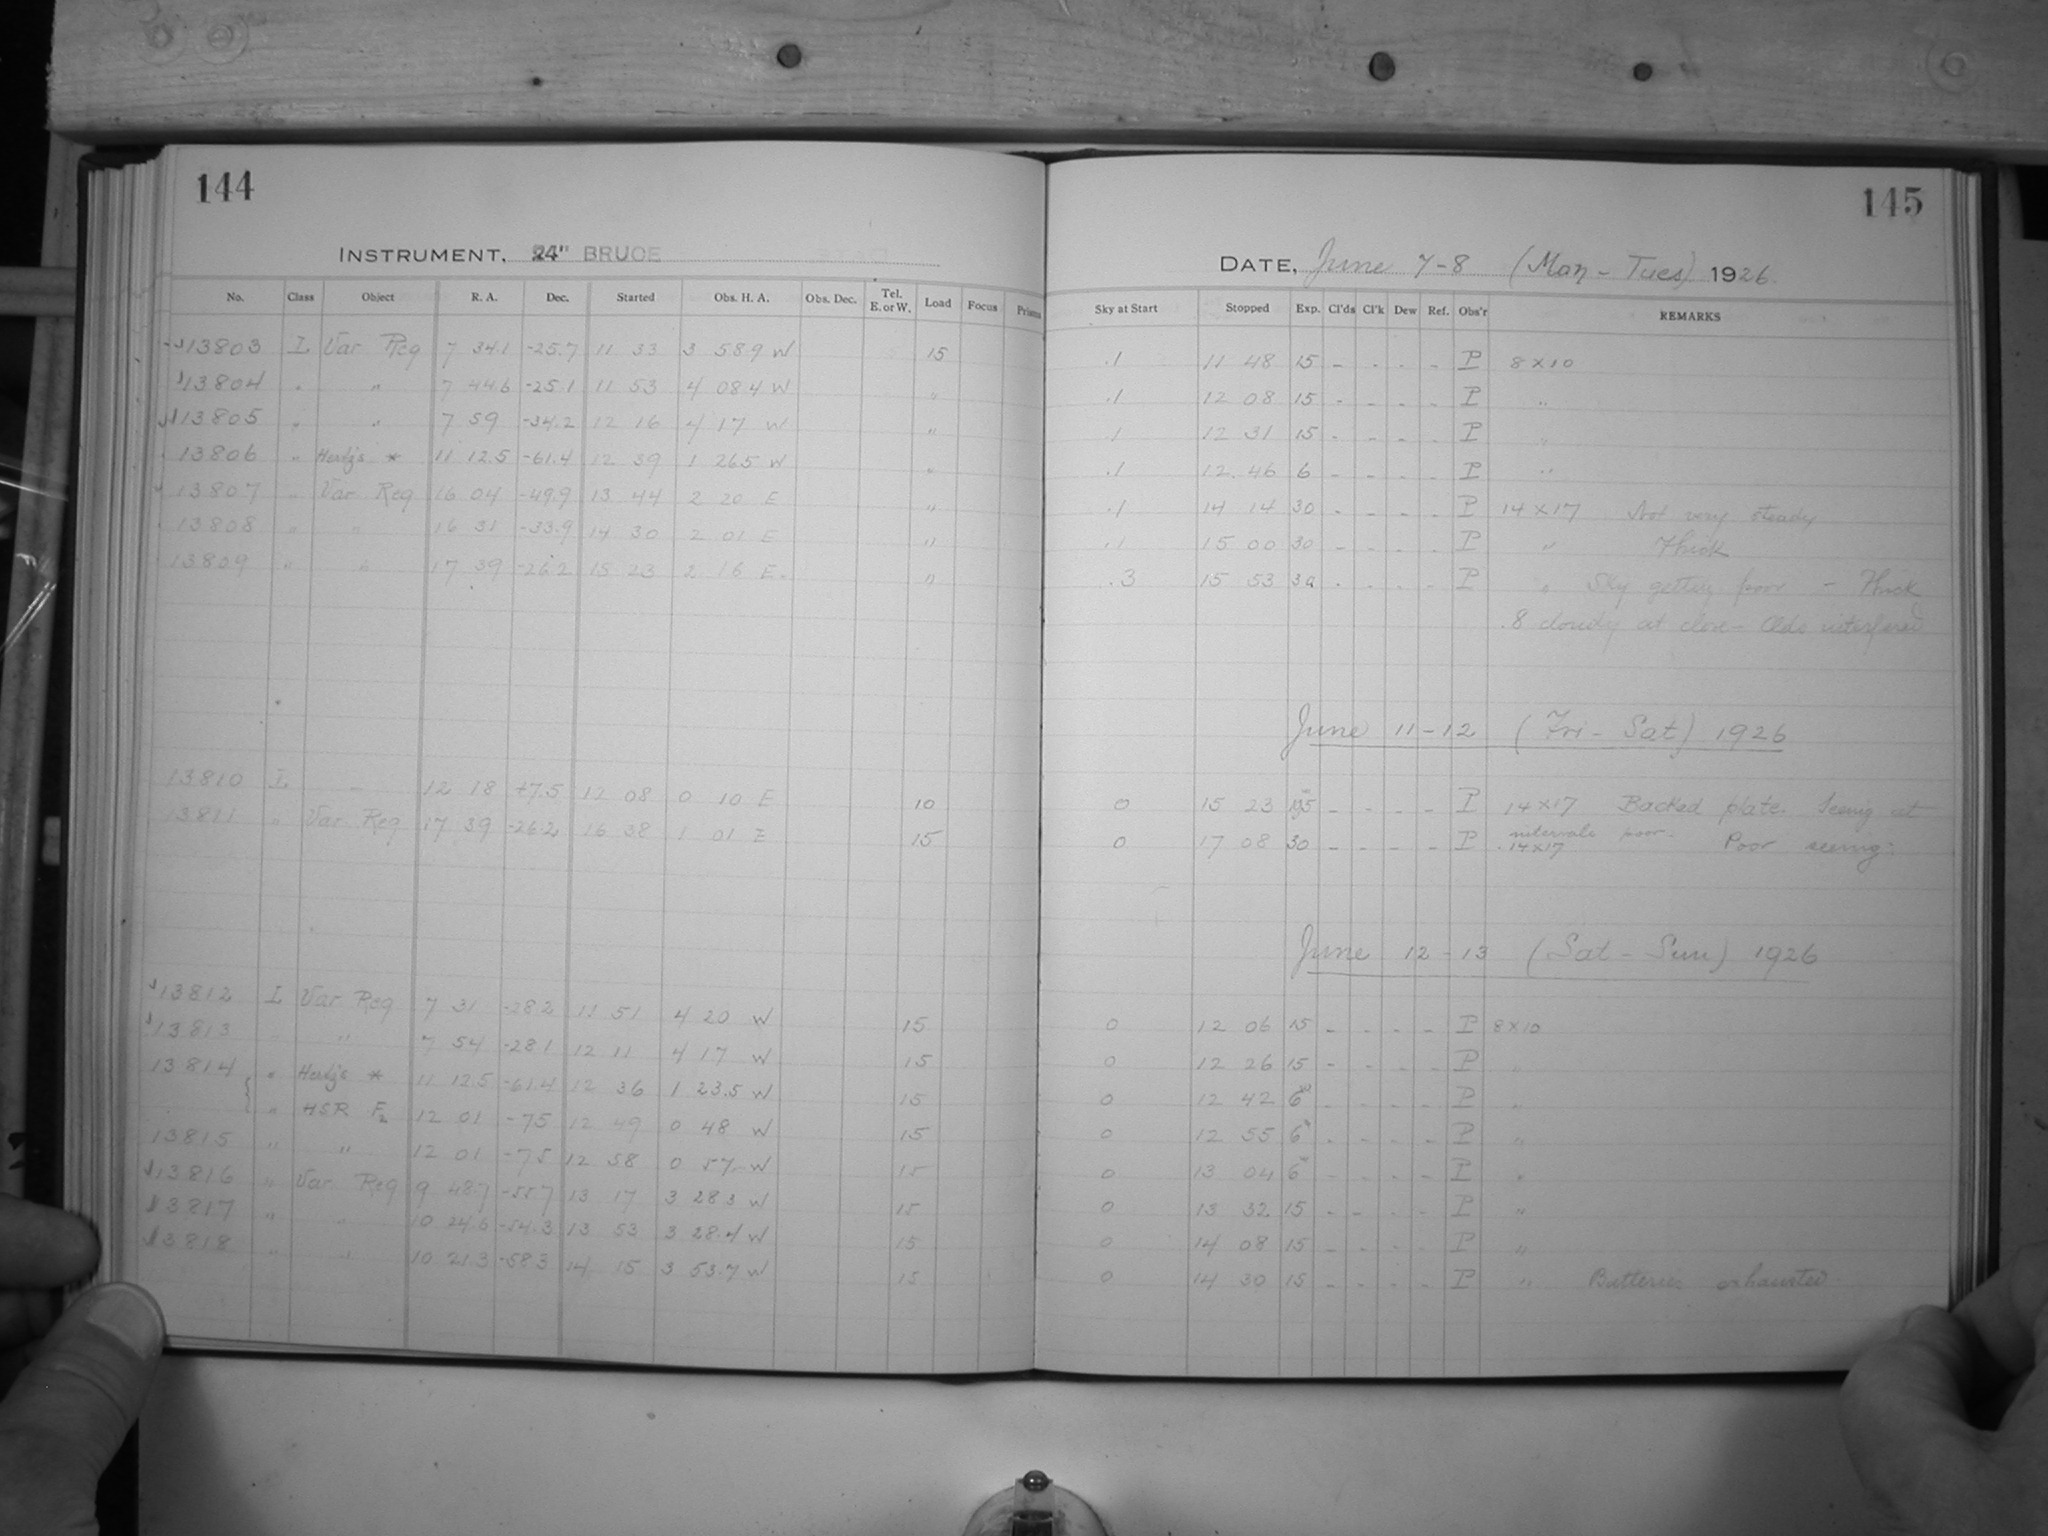 144
INSTRUMENT, 24" BRUCE
No. Class Object R. A. Dec. Started Obs. H. A. Obs. Dec. Tel. E. or W. Load Focus Prisms
13803 I Var Reg 7 34.1 -25.7 11 33 3 58.9 W 15
13804 " " 7 44.6 -25.1 11 53 4 08.4 W "
13805 " " 7 59 -34.2 12 16 4 17 W "
13806 " Hertz's * 11 12.5 -61.4 12 39 1 26.5 W "
13807 " Var Reg 16 04 -49.9 13 44 2 20 E "
13808 " " 16 31 -33.9 14 30 2 01 E "
13809 " " 17 39 -26.2 15 23 2 16 E "
13810 I - 12 18 +7.5 12 08 0 10 E 10
13811 " Var Reg 17 39 -26.2 16 38 1 01 E 15
13812 I Var Reg 7 31 -28.2 11 51 4 20 W 15
13813 " " 7 54 -28.1 12 11 4 17 W 15
13814 " Hertz's * 11 12.5 -61.4 12 36 1 23.5 W 15
" HSR F2 12 01 -75 12 49 0 48 W 15
13815 " " 12 01 -75 12 58 0 57 W 15
13816 " Var Reg 9 48.7 -55.7 13 17 3 28.3 W 15
13817 " " 10 24.6 -54.3 13 53 3 28.4 W 15
13818 " " 10 21.3 -58.3 14 15 3 53.7 W 15
145
DATE, June 7-8 (Mon - Tues) 1926
Sky at Start Stopped Exp. Cl'ds Cl'k Dew Ref. Obs'r REMARKS
.1 11 48 15 - - - - P 8 x 10
.1 12 08 15 - - - - P "
.1 12 31 15 - - - - P "
.1 12 46 6 - - - - P "
.1 14 14 30 - - - - P 14 x 17 Not very steady
.1 15 00 30 - - - - P " Thick
.3 15 53 30 - - - - P " Sky getting poor - Thick
.8 cloudy at close - Clds interfered
June 11-12 (Fri - Sat) 1926
0 15 23 195 - - - - P 14 x 17 Backed plate. Seeing at
intervals poor.
0 17 08 30 - - - - P 14 x 17 Poor seeing.
June 12-13 (Sat - Sun) 1926
0 12 06 15 - - - - P 8 x 10
0 12 26 15 - - - - P "
0 12 42 6 - - - - P "
0 12 55 6 - - - - P "
0 13 04 6 - - - - P "
0 13 32 15 - - - - P "
0 14 08 15 - - - - P "
0 14 30 15 - - - - P " Batteries exhausted